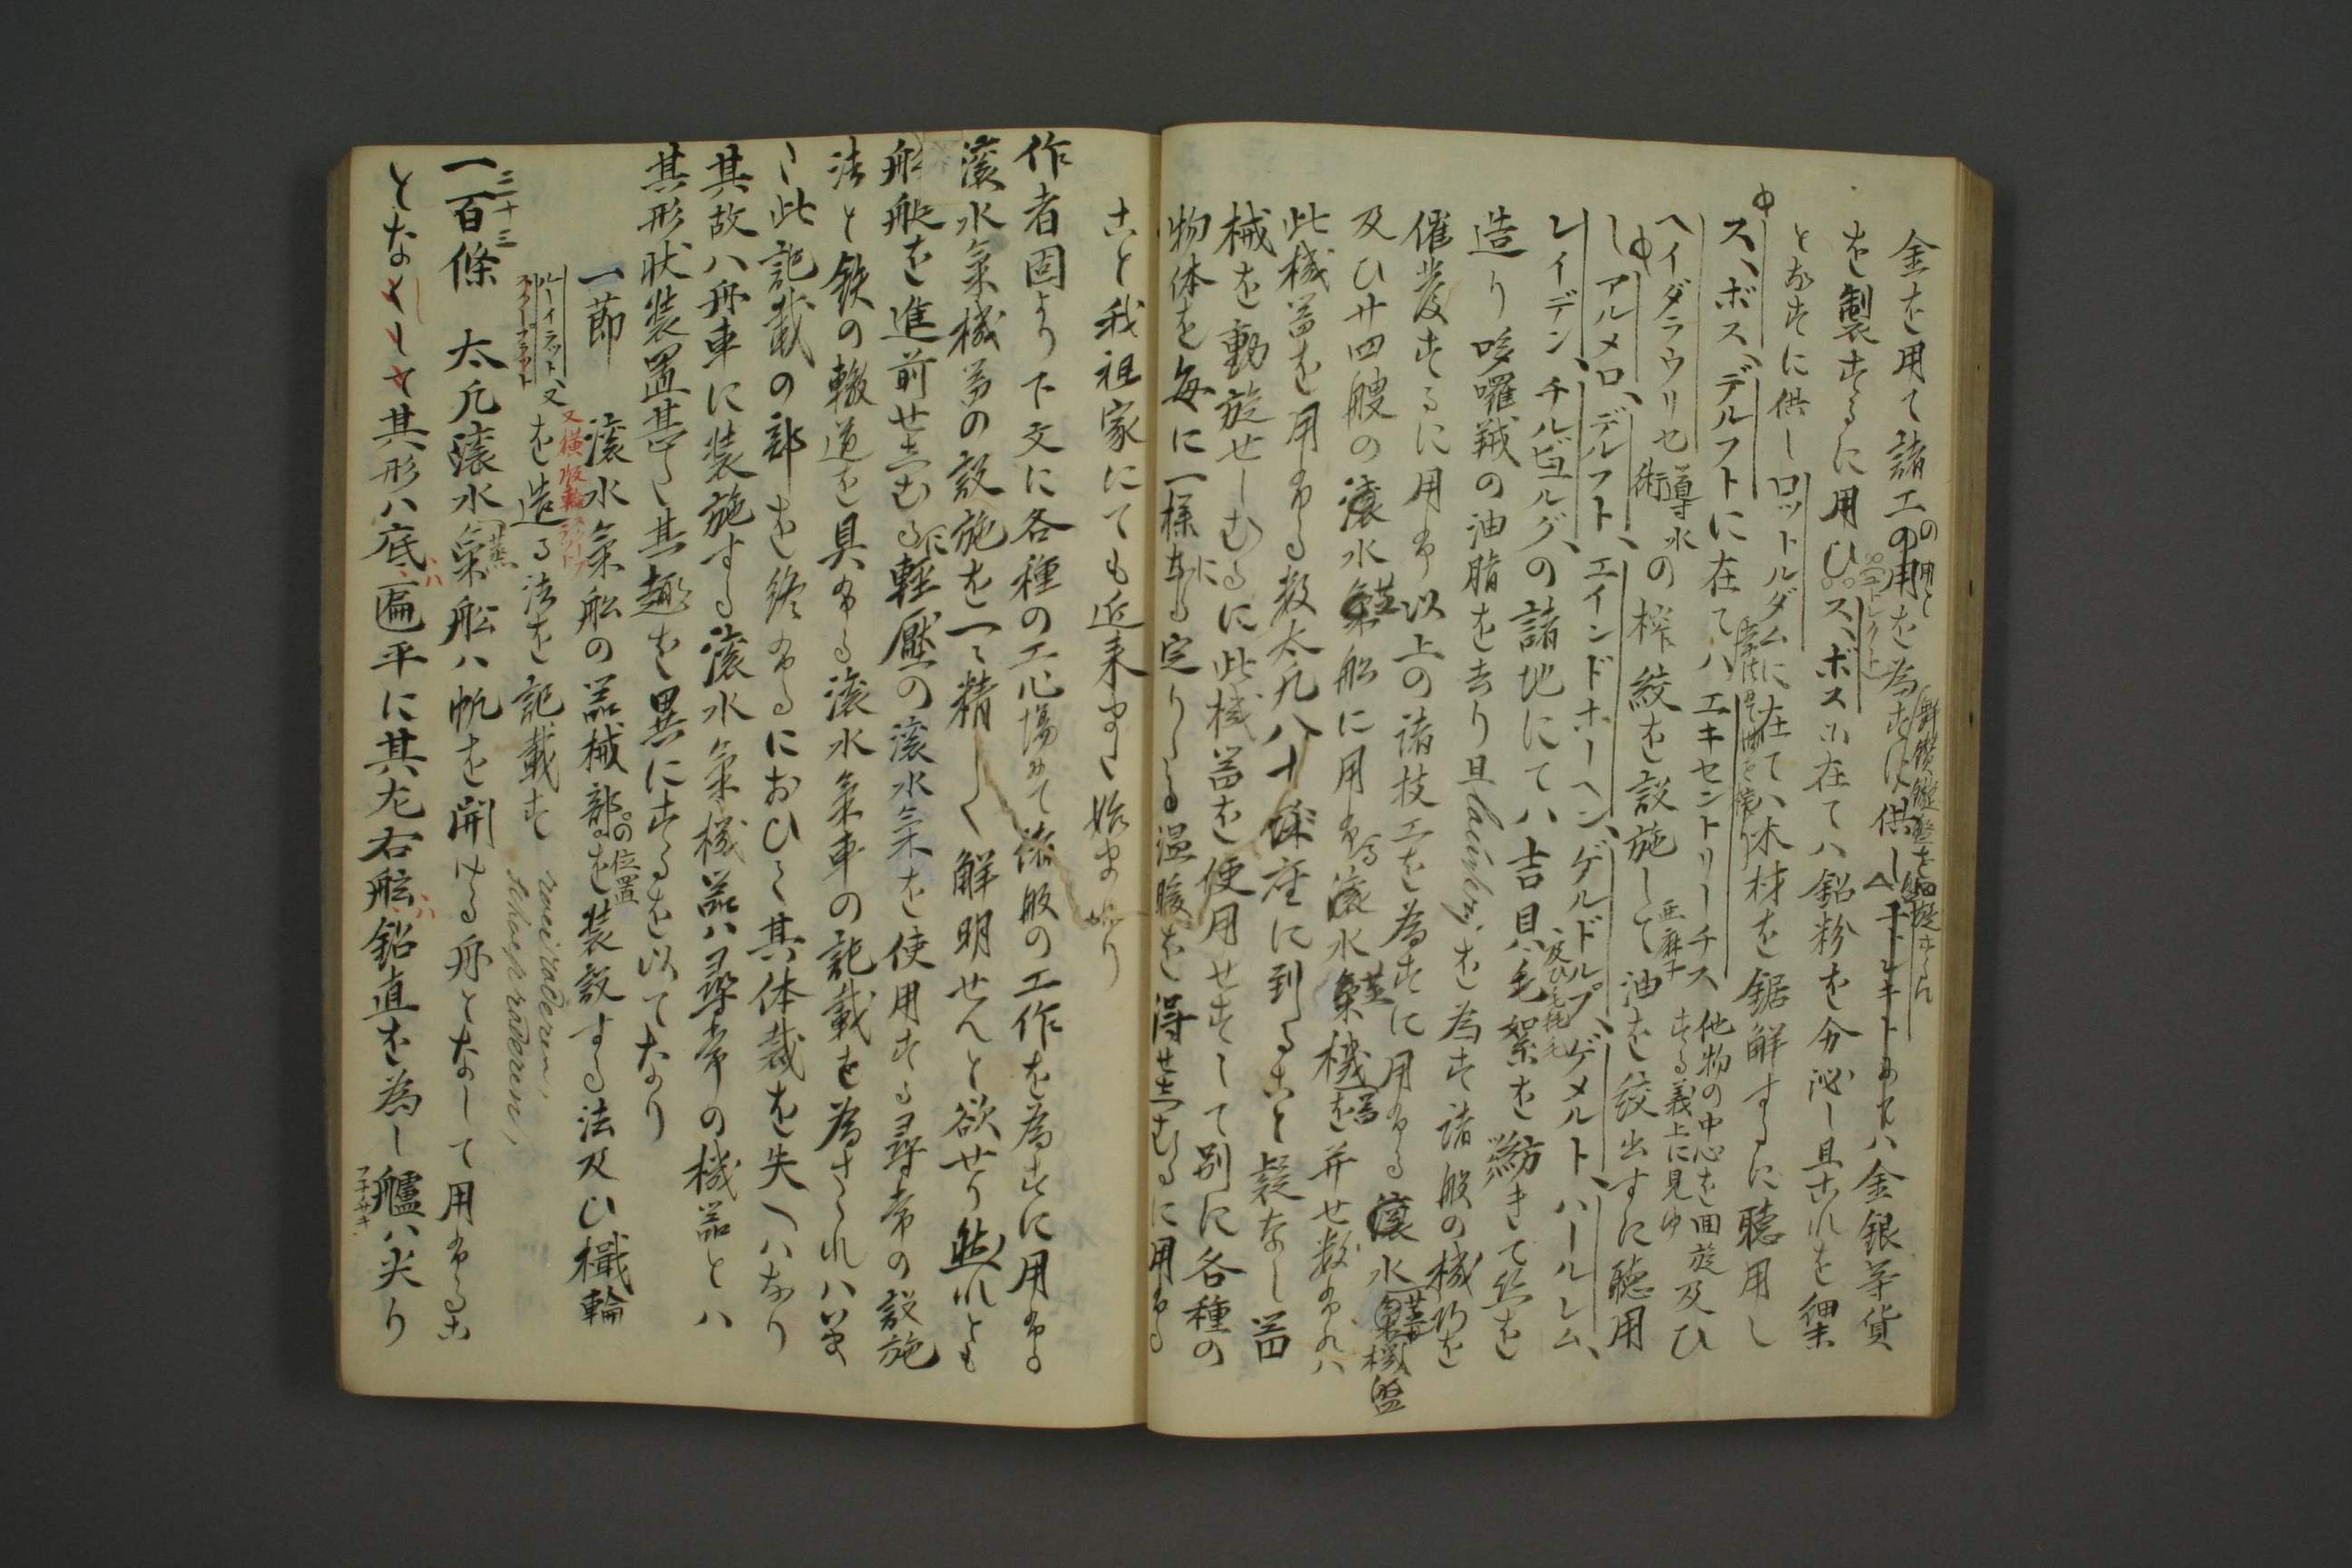 金を用て諸工の用を為すに供し
ハ金銀等貨
を製するに用ひスボスに在てハ鉛粉を分泌し且これを細末
となすに供しロットルダムに在てハ木材を鋸解するに聴用し
スボス、デルフトに在てハエキセントリーチス 他物の中心を回旋及ひする義上に見ゆ
ヘイダラウリセ 導水術 の搾絞を設施して油を絞出すに聴用
し アルメロ、デルフト、エインドホーヘン、ゲルドルプ、ゲメルト、ハールレム、
レイデン、チルビュルグ、の諸地にてハ吉貝 及ひ毛 絮を紡きて絲を
造り哆囉羢の油脂を去り且 を為す諸般の機巧を
催発するに用ゆ以上の諸技工を為すに用ゆる滾水 機盤
及ひ廿四艘の滾水 船に用ゆる滾水 機を并せ数ゆれハ
此機器を用ゆる数大凡八十 座に到ること疑なし器
械を動旋せしむるに此機器を便用せすして別に各種の
物体を毎に一様なる定りある温暖を得せしむるに用ゆる
こと我祖家にても近来 始まれり
作者固より下文に各種の工作場にて諸般の工作を為すに用ゆる
滾水氣機器の設施を一々精しく解明せんと欲せり然れとも
船舶を進前せしむるに軽壓の滾水氣を使用する尋常の設施
法と鉄の轍道を具ゆる滾水氣車の記載を為さゝれハ
此記載の部を終ゆるにおひて其体裁を失へハなり
其故ハ舟車に装施する滾水氣機器ハ尋常の機器とハ
其形状装置甚た其趣を異にするを以てなり
一節 滾水氣船の器械部の位置を装設する法及ひ檝輪
又横版輪
を造る法を記載す roeiraderen, schepraderen,
三十三
一百條 大凡滾水氣船ハ帆を開ける舟となして用ゆるこ
となくして其形ハ底匾平に其左右舷鉛直を為し艫ハ尖り